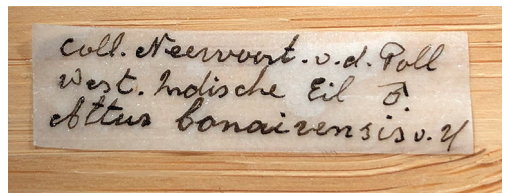 Coll. Neervoort. v. d. Poll
West. Indische Eil ♂.
Attus bonairensis v. H